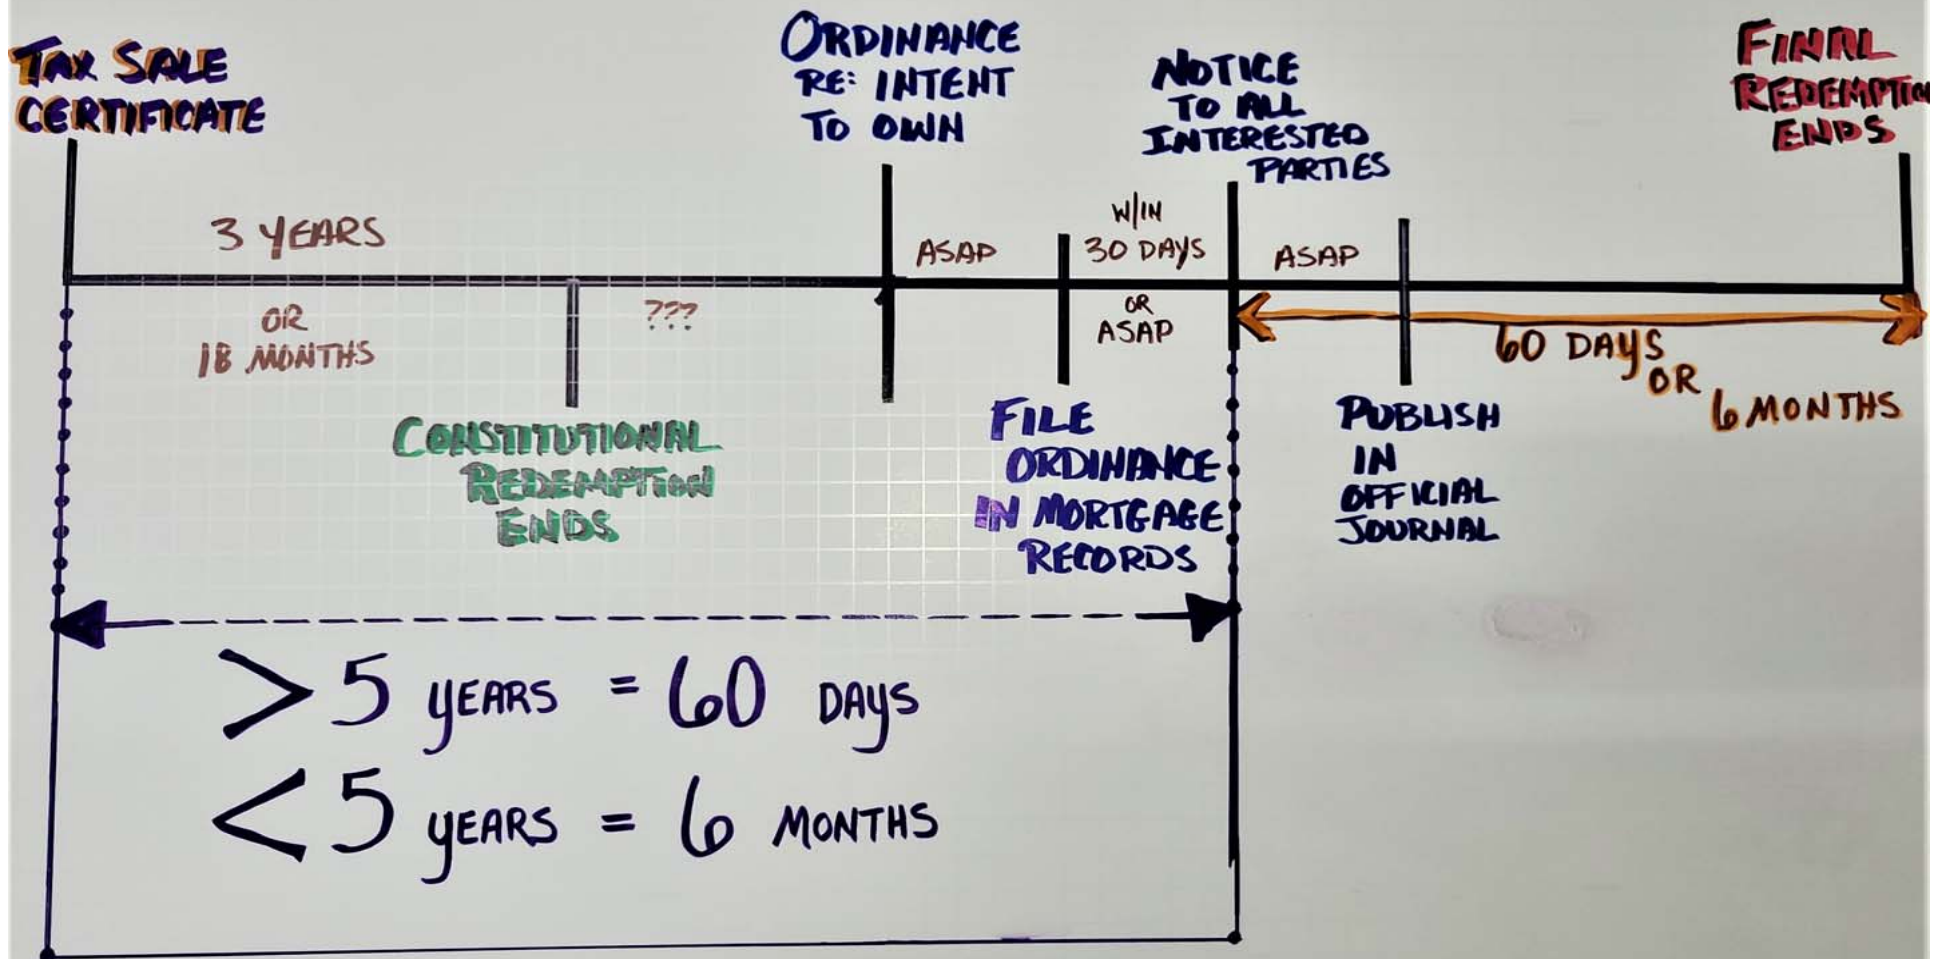 TAX SALE
CERTIFICATE
ORDINANCE
RE: INTENT
TO OWN
NOTICE
TO ALL
INTERESTED
PARTIES
FINAL
REDEMPTION
ENDS
3 YEARS
OR
18 MONTHS
???
ASAP
W/IN
30 DAYS
OR
ASAP
ASAP
60 DAYS
OR
6 MONTHS
CONSTITUTIONAL
REDEMPTION
ENDS
FILE
ORDINANCE
IN MORTGAGE
RECORDS
PUBLISH
IN
OFFICIAL
JOURNAL
> 5 YEARS = 60 DAYS
< 5 YEARS = 6 MONTHS